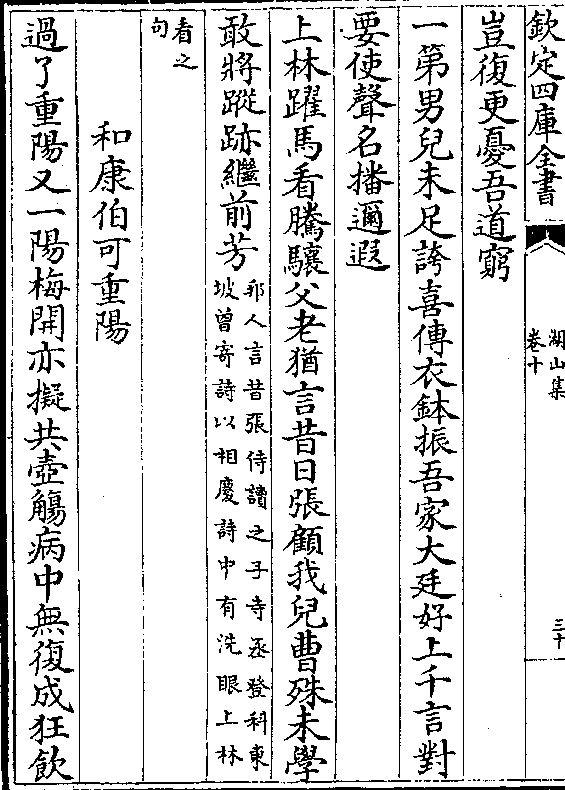 欽定四庫全書
湖山集
卷十
三十
豈復更憂吾道窮
一第男兒未足誇喜傳衣鉢振吾家大廷好上千言對
要使聲名播邇遐
上林躍馬看騰驤父老猶言昔日張顧我兒曹殊未學
敢將蹤跡繼前芳
邦人言昔張侍讀之子寺丞登科東
坡曾寄詩以相慶詩中有洗眼上林
看之
句
和康伯可重陽
過了重陽又一陽梅開亦擬共壺觴病中無復成狂飲